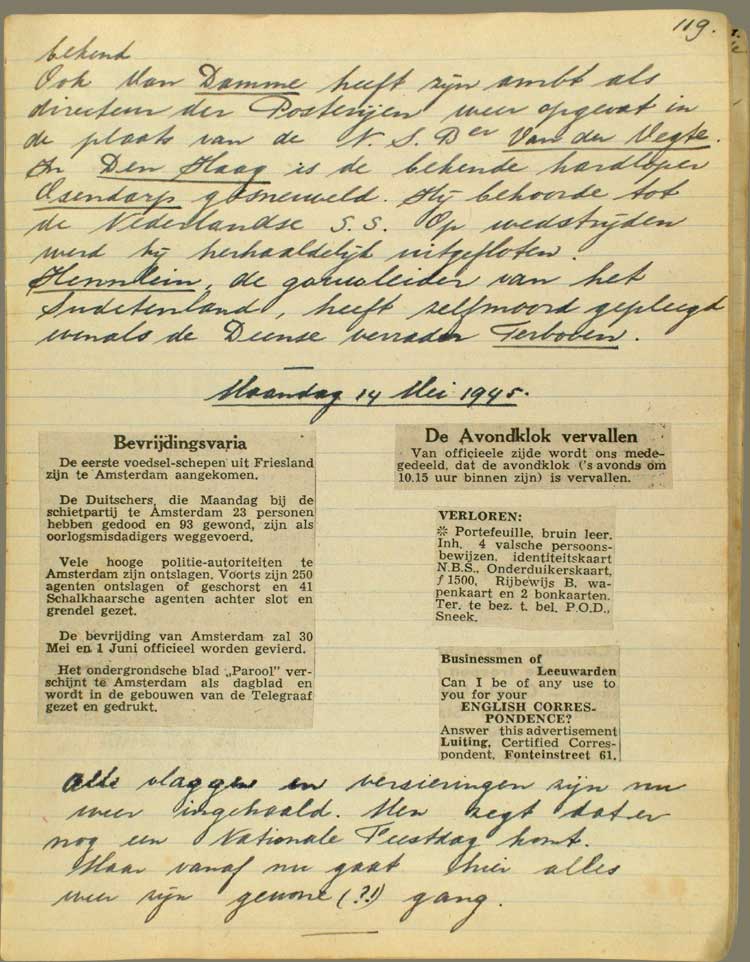 119.
bekend
Ook Van Damme heeft zijn ambt als
directeur der Posterijen weer opgevat in
de plaats van de N.S.Der Van der Vegte.
In Den Haag is de bekende hardloper
Osendarp gesneuveld. Hij behoorde tot
de Nederlandse S.S. Op wedstrijden
werd hij herhaaldelijk uitgefloten.
Hennlein, de gouwleider van het
Sudetenland, heeft zelfmoord gepleegd
evenals de Deense verrader Terboven.
Maandag 14 Mei 1945.
Bevrijdingsvaria
De eerste voedsel-schepen uit Friesland
zijn te Amsterdam aangekomen.
De Duitschers, die Maandag bij de
schietpartij te Amsterdam 23 personen
hebben gedood en 93 gewond, zijn als
oorlogsmisdadigers weggevoerd.
Vele hooge politie-autoriteiten te
Amsterdam zijn ontslagen. Voorts zijn 250
agenten ontslagen of geschorst en 41
Schalkhaarsche agenten achter slot en
grendel gezet.
De bevrijding van Amsterdam zal 30
Mei en 1 Juni officieel worden gevierd.
Het ondergrondsche blad „Parool” ver-
schijnt te Amsterdam als dagblad en
wordt in de gebouwen van de Telegraaf
gezet en gedrukt.
De Avondklok vervallen
Van officieele zijde wordt ons mede-
gedeeld, dat de avondklok ('s avonds om
10.15 uur binnen zijn) is vervallen.
VERLOREN:
※ Portefeuille, bruin leer.
Inh. 4 valsche persoons-
bewijzen, identiteitskaart
N.B.S., Onderduikerskaart,
ƒ 1500, Rijbewijs B, wa-
penkaart en 2 bonkaarten.
Ter. te bez. t. bel. P.O.D.,
Sneek.
Businessmen of
Leeuwarden
Can I be of any use to
you for your
ENGLISH CORRES-
PONDENCE?
Answer this advertisement
Luiting, Certified Corres-
pondent, Fonteinstreet 61.
Alle vlaggen en versieringen zijn nu
weer ingehaald. Men zegt dat er
nog een Nationale Feestdag komt.
Maar vanaf nu gaat hier alles
weer zijn gewone (?!) gang.